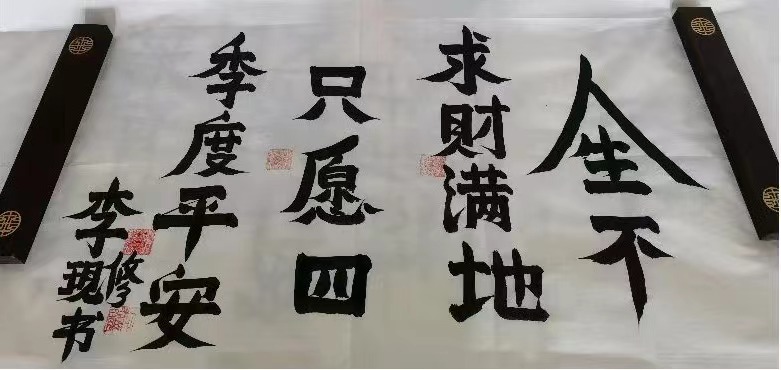 人生不
求财满地
只愿四
季度平安
李修现书